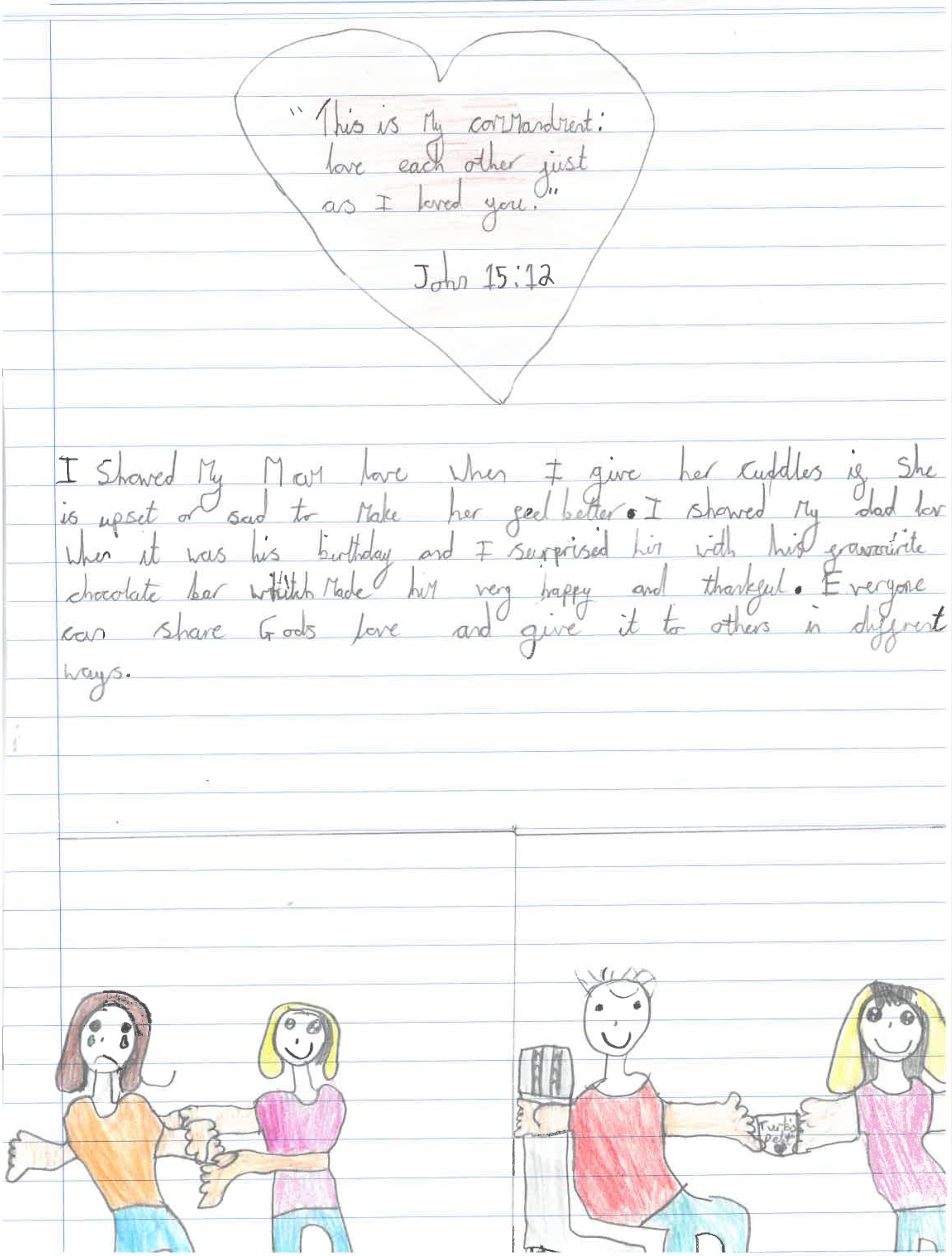 "This is My commandment:
love each other just
as I loved you."
John 15:12
I Showed My Mam love when I give her cuddles if She
is upset or sad to Make her feel better. I showed My dad lov
When it was his birthday and I surprised him with his
chocolate bar Made him very happy and thankful. Everyone
can share Gods love and give it to others in different
ways.
Turkis